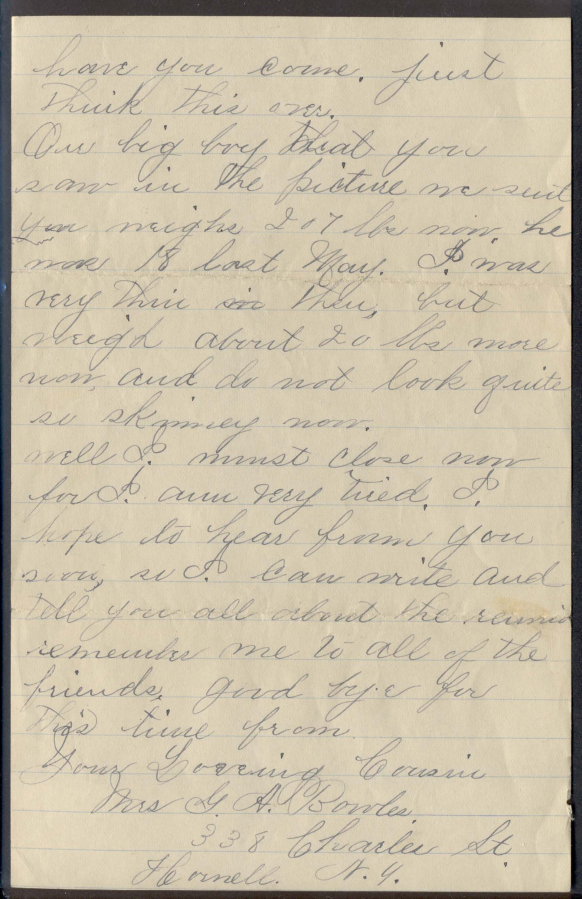 have you come. just
think this over.
Our big boy that you
saw in the picture we sent
you weighs 207 lbs now, he
was 18 last May. I was
very thin in then, but
weigh'd about 20 lbs more
now, and do not look quite
so skinney now.
well I. must close now
for I. am very tired. I.
hope to hear from you
soon, so I. can write and
tell you all about the reunion
remember me to all of the
friends. good bye for
this time from.
Your Loveing Cousin
Mrs G. A. Bowles.
338 Charles St.
Hornell. N. Y.